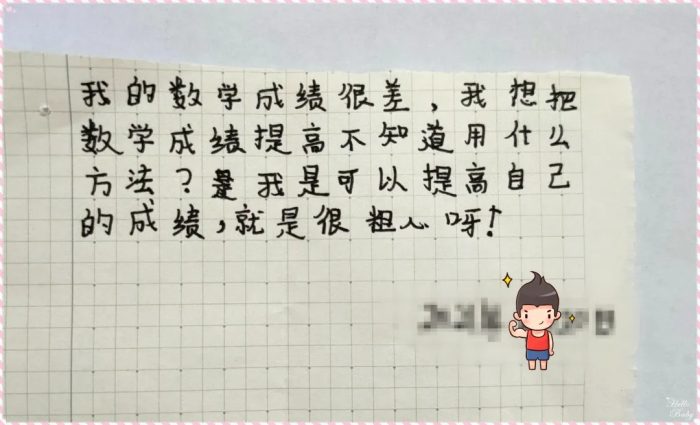 我的数学成绩很差，我想把
数学成绩提高不知道用什么
方法？是我是可以提高自己
的成绩，就是很粗心呀！
Hello
Baby